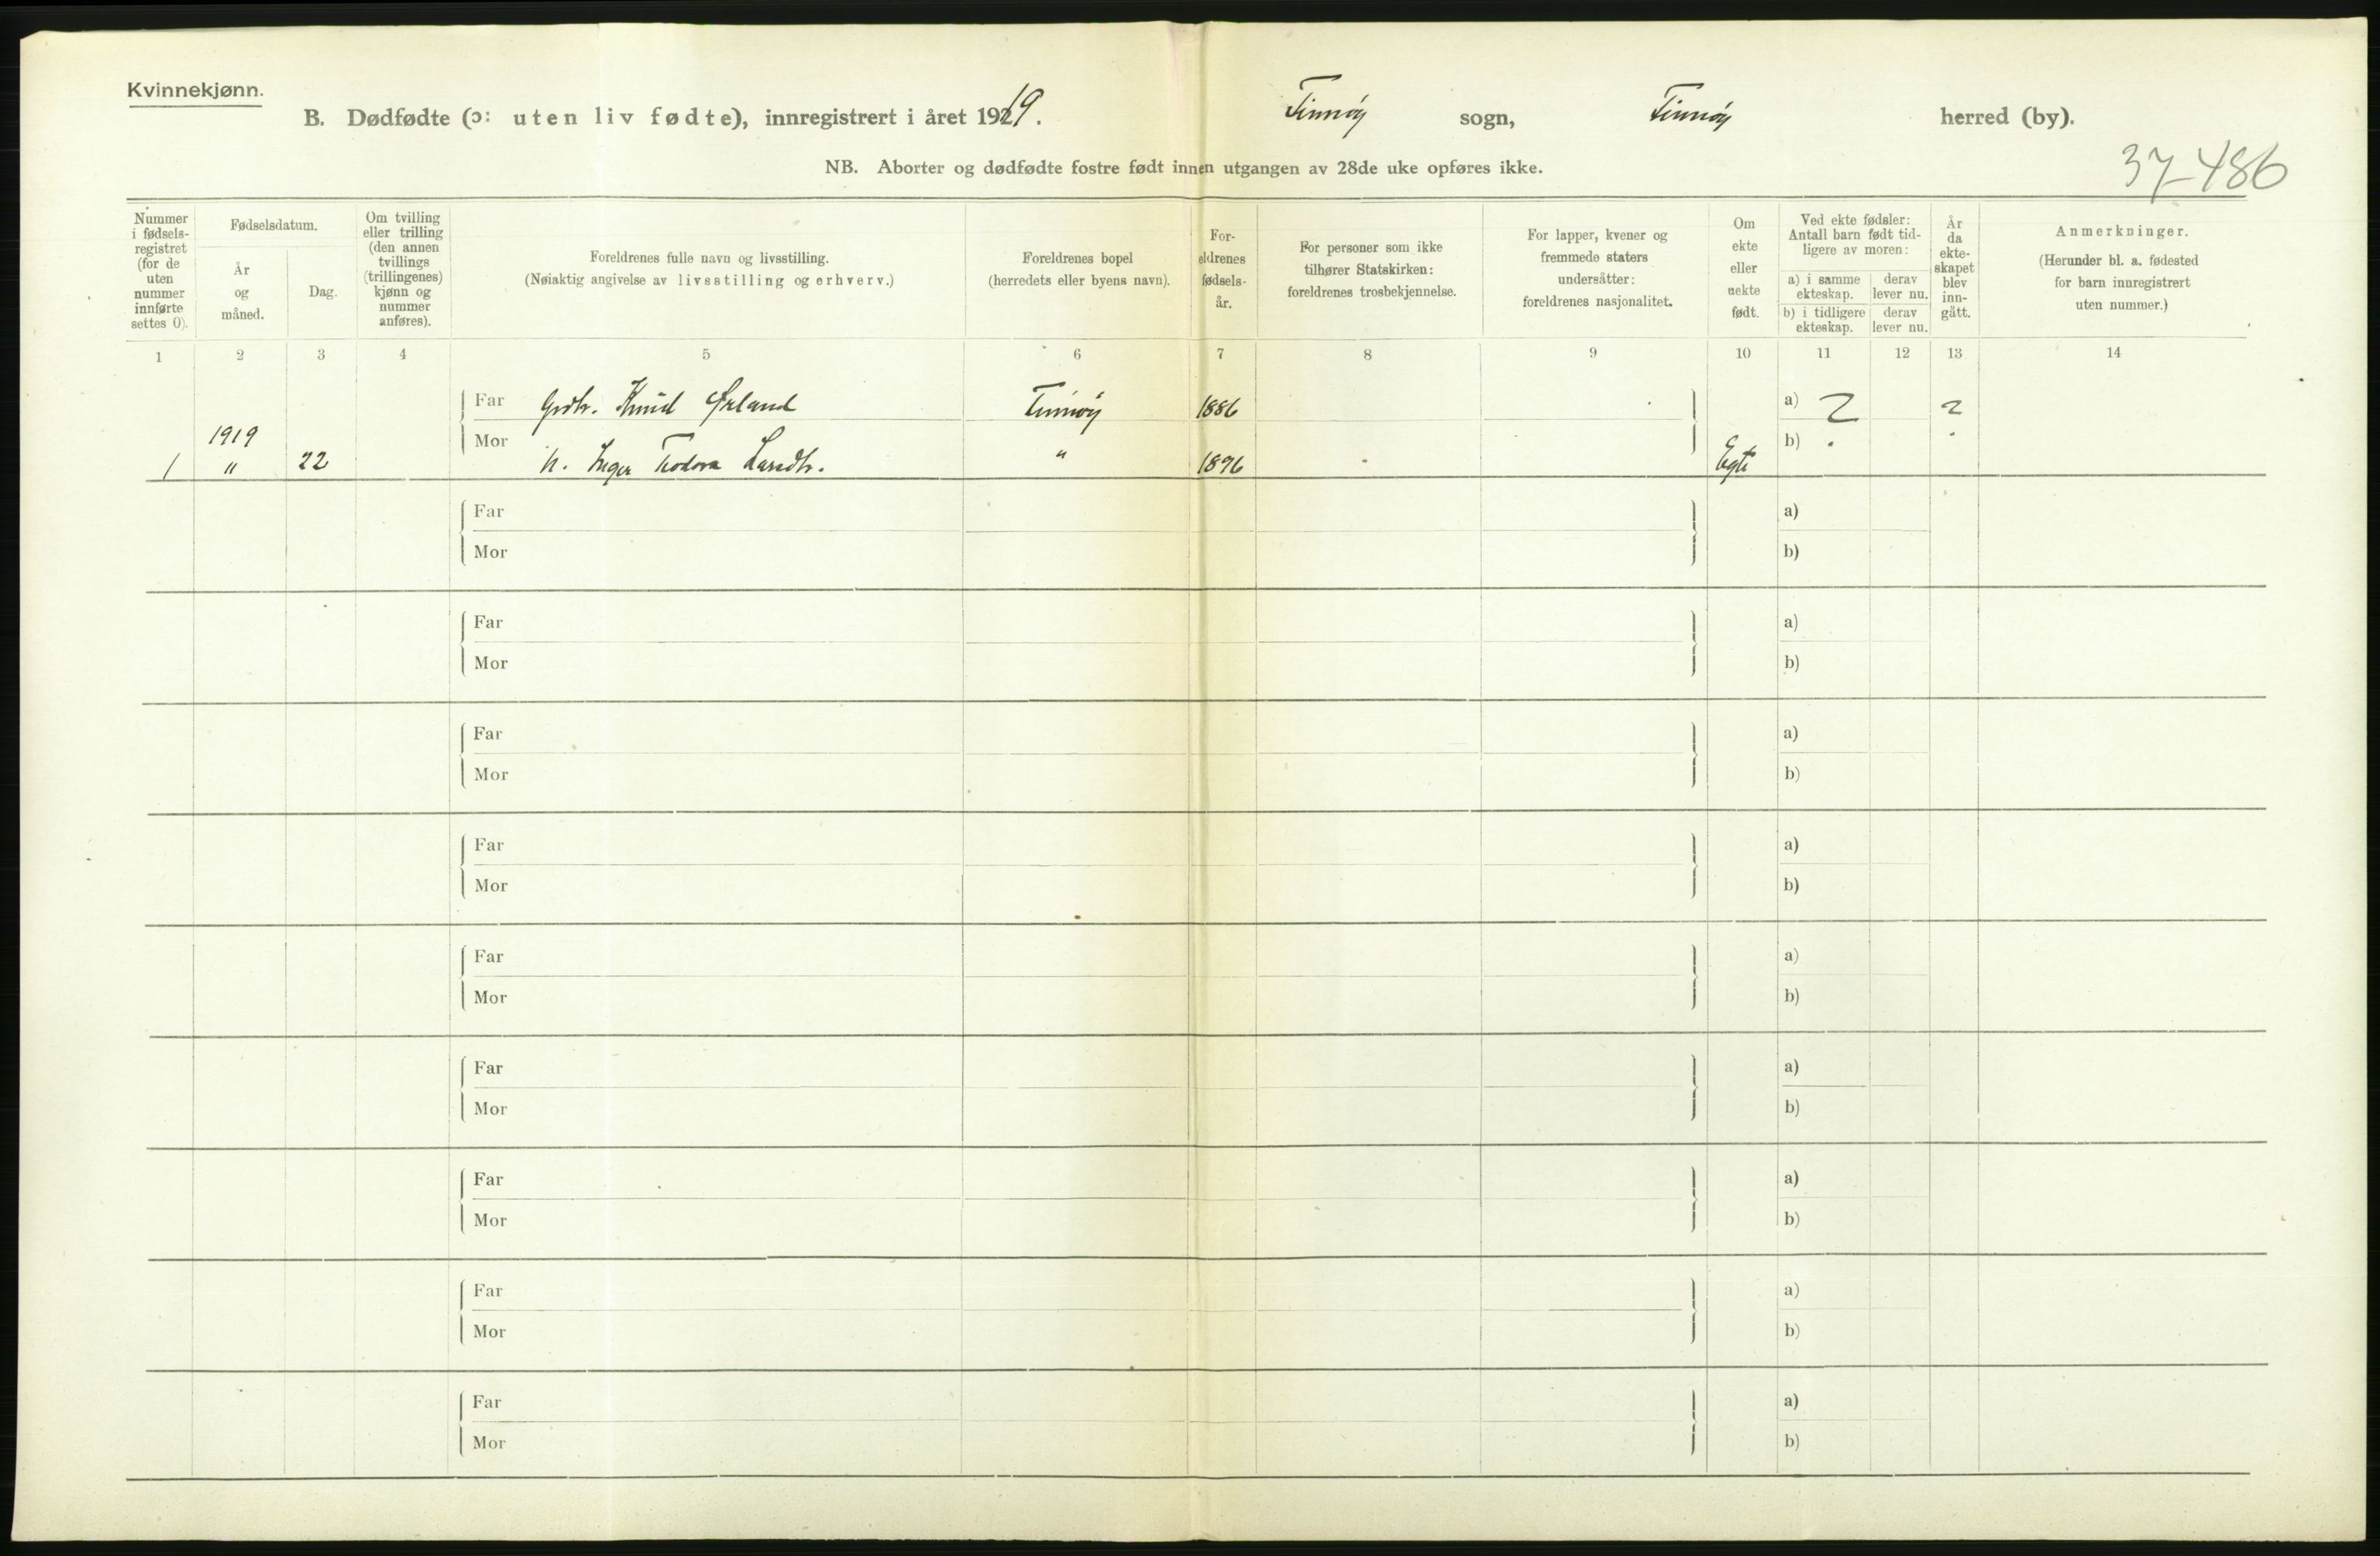 Kvinnekjønn.
B. Dødfødte (ɔ: uten liv fødte), innregistrert i året 1919. Finnøy sogn, Finnøy herred (by).
NB. Aborter og dødfødte fostre født innen utgangen av 28de uke opføres ikke.
37-486
Nummer i fødsels-registret (for de uten nummer innførte settes 0).
Fødselsdatum.
År og måned.
Dag.
Om tvilling eller trilling (den annen tvillings (trillingenes) kjønn og nummer anføres).
Foreldrenes fulle navn og livsstilling.
(Nøiaktig angivelse av livsstilling og erhverv.)
Foreldrenes bopel
(herredets eller byens navn).
For-eldrenes fødsels-år.
For personer som ikke tilhører Statskirken: foreldrenes trosbekjennelse.
For lapper, kvener og fremmede staters undersåtter: foreldrenes nasjonalitet.
Om ekte eller uekte født.
Ved ekte fødsler: Antall barn født tid-ligere av moren:
a) i samme ekteskap.
derav lever nu.
b) i tidligere ekteskap.
derav lever nu.
År da ekte-skapet blev inn-gått.
Anmerkninger.
(Herunder bl. a. fødested for barn innregistrert uten nummer.)
1 2 3 4 5 6 7 8 9 10 11 12 13 14
Far Grdbr. Knud Ørland Finnøy 1886 a) ? ?
1919
Mor b)
1 " 22 h. Inger Todora Larsdtr. " 1896 Egte
Far a)
Mor b)
Far a)
Mor b)
Far a)
Mor b)
Far a)
Mor b)
Far a)
Mor b)
Far a)
Mor b)
Far a)
Mor b)
Far a)
Mor b)
Far a)
Mor b)